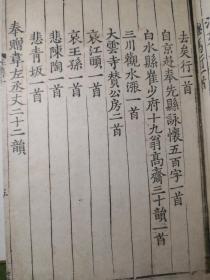 去矣行一首
自京赴奉先縣詠懷五百字一首
白水縣崔少府十九翁高齋三十韻一首
三川觀水漲一首
大雲寺贊公房二首
哀江頭一首
哀王孫一首
悲陳陶一首
悲青坂一首
奉贈韋左丞丈二十二韻